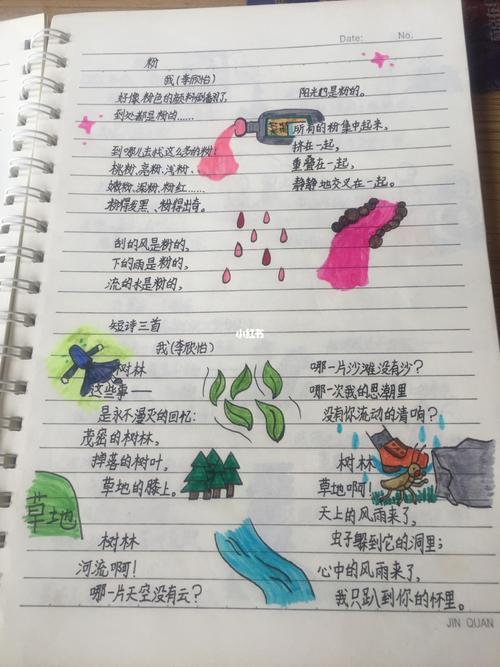 Date: No.
粉
我(李欣怡)
好像粉色的颜料倒翻了,
到处都是粉的……
到哪儿去找这么多的粉!
桃粉、亮粉、浅粉、
嫩粉、深粉、粉红……
粉得发黑、粉得出奇。
刮的风是粉的,
下的雨是粉的,
流的水是粉的,
阳光也是粉的。
所有的粉集中起来,
挤在一起,
重叠在一起,
静静地交叉在一起。
小红书
短诗三首
我(李欣怡)
树林
这些事——
是永不漫灭的回忆:
茂密的树林,
掉落的树叶,
草地的膝上。
草地
树林
河流啊!
哪一片天空没有云?
哪一片沙滩没有沙?
哪一次我的思潮里
没有你流动的清响?
树林
草地啊!
天上的风雨来了,
虫子躲到它的洞里;
心中的风雨来了,
我只趴到你的怀里。
JIN QUAN